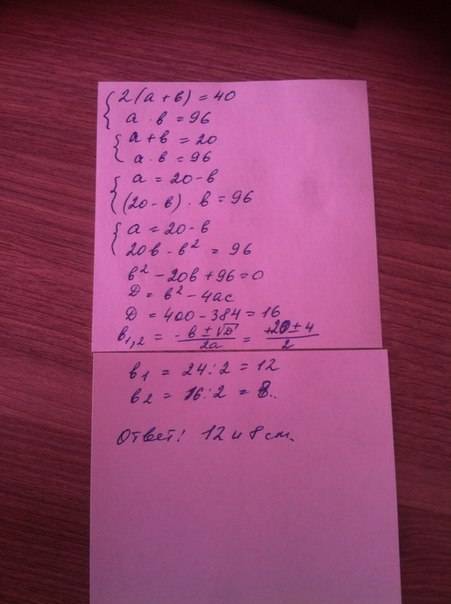 { 2(a + b) = 40
a · b = 96
{ a + b = 20
a · b = 96
{ a = 20 - b
(20 - b) · b = 96
{ a = 20 - b
20b - b² = 96
b² - 20b + 96 = 0
D = b² - 4ac
D = 400 - 384 = 16
b₁,₂ = (-b ± √D)/2a = (+20 ± 4)/2
b₁ = 24 : 2 = 12
b₂ = 16 : 2 = 8.
Ответ: 12 и 8 см.